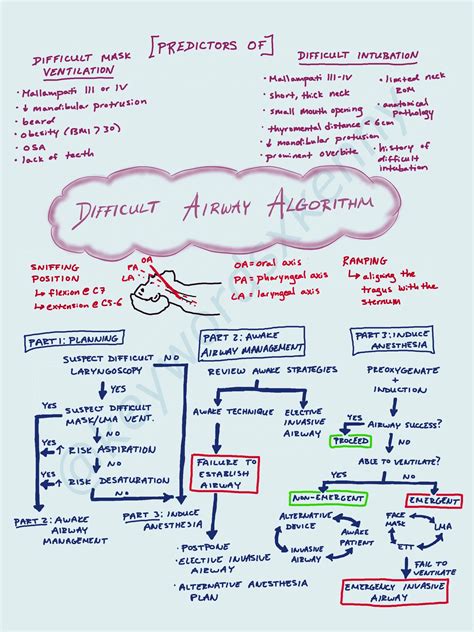 [PREDICTORS OF]
DIFFICULT MASK
VENTILATION
• Mallampati III or IV
• ↓ mandibular protrusion
• beard
• obesity (BMI > 30)
• OSA
• lack of teeth
DIFFICULT INTUBATION
• Mallampati III-IV
• short, thick neck
• small mouth opening
• thyromental distance < 6cm
• ↓ mandibular protusion
• prominent overbite
• limited neck
ROM
• anatomical
pathology
• history of
difficult
intubation
DIFFICULT AIRWAY ALGORITHM
SNIFFING
POSITION
↳ flexion @ C7
↳ extension @ C5-6
OA
PA
LA
OA = oral axis
PA = pharyngeal axis
LA = laryngeal axis
RAMPING
↳ aligning the
tragus with the
sternum
PART 1: PLANNING
SUSPECT DIFFICULT
LARYNGOSCOPY
NO
YES
SUSPECT DIFFICULT
MASK/LMA VENT.
YES
NO
YES ↑ RISK ASPIRATION
NO
YES ↑ RISK DESATURATION
NO
PART 2: AWAKE
AIRWAY
MANAGEMENT
PART 3: INDUCE
ANESTHESIA
PART 2: AWAKE
AIRWAY MANAGEMENT
REVIEW AWAKE STRATEGIES
AWAKE TECHNIQUE
ELECTIVE
INVASIVE
AIRWAY
FAILURE TO
ESTABLISH
AIRWAY
• POSTPONE
• ELECTIVE INVASIVE
AIRWAY
• ALTERNATIVE ANESTHESIA
PLAN
PART 3: INDUCE
ANESTHESIA
PREOXYGENATE
+
INDUCTION
YES AIRWAY SUCCESS?
PROCEED
NO
ABLE TO VENTILATE?
YES
NO
NON-EMERGENT
EMERGENT
ALTERNATIVE
DEVICE
AWAKE
PATIENT
INVASIVE
AIRWAY
FACE
MASK
LMA
ETT
FAIL TO
VENTILATE
EMERGENCY INVASIVE
AIRWAY